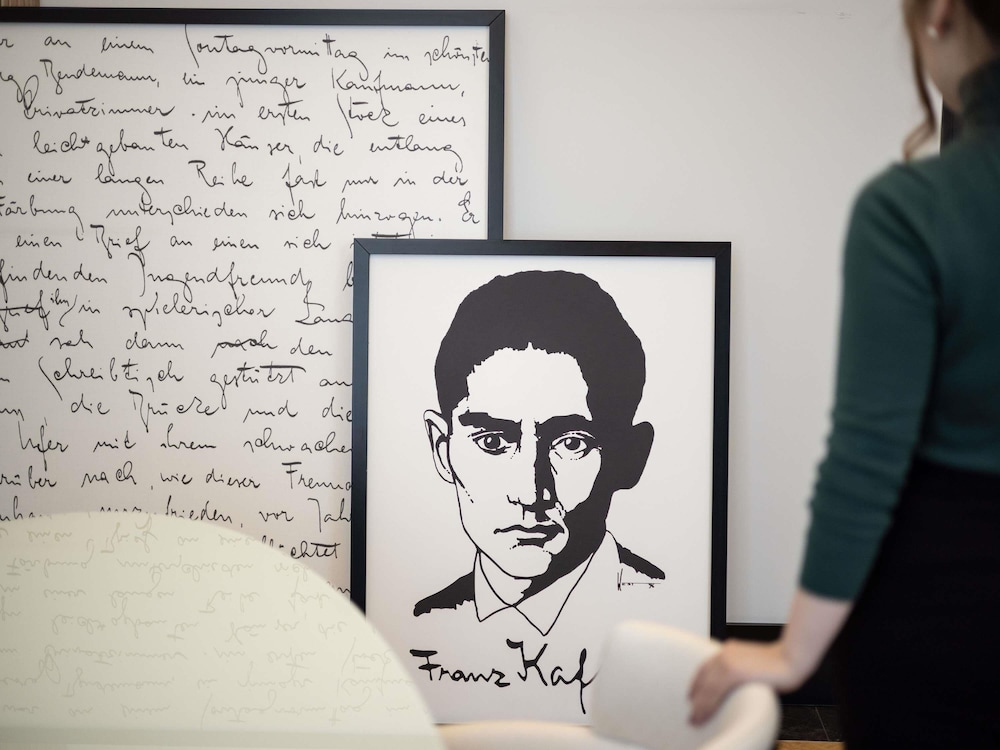 r an einem Sontagvormittag im schönsten
g Bendemann, ein junger Kaufmann,
Privatzimmer im ersten Stock eines
leicht gebauten Häuser, die entlang
einer langen Reihe fast nur in der
Färbung unterschieden sich hinzogen. Er
einen Brief an einen sich
findenden Jugendfreund b
ihn in spielerischer Lang
sah dann nach den
Schreibtisch gestützt au
die Brücke und die
Ufer mit ihrem schwache
rüber nach, wie dieser Freund
zufrieden, vor Jah
flüchtet
Franz Kaf